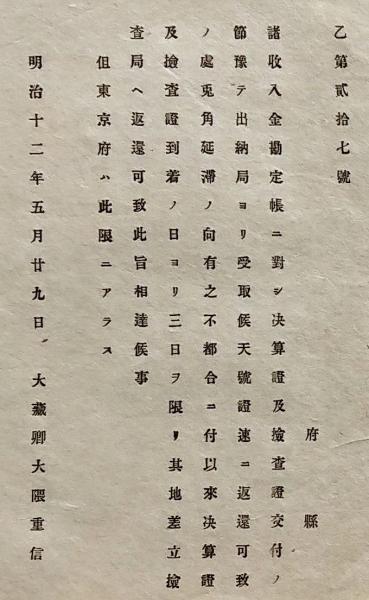 乙第貳拾七號
府縣
諸收入金勘定帳ニ對シ决算證及撿査證交付ノ
節豫テ出納局ヨリ受取候天號證速ニ返還可致
ノ處兎角延滯ノ向有之不都合ニ付以來决算證
及撿査證到着ノ日ヨリ三日ヲ限リ其地差立撿
査局ヘ返還可致此旨相達候事
但東京府ハ此限ニアラス
明治十二年五月廿九日　大藏卿大隈重信